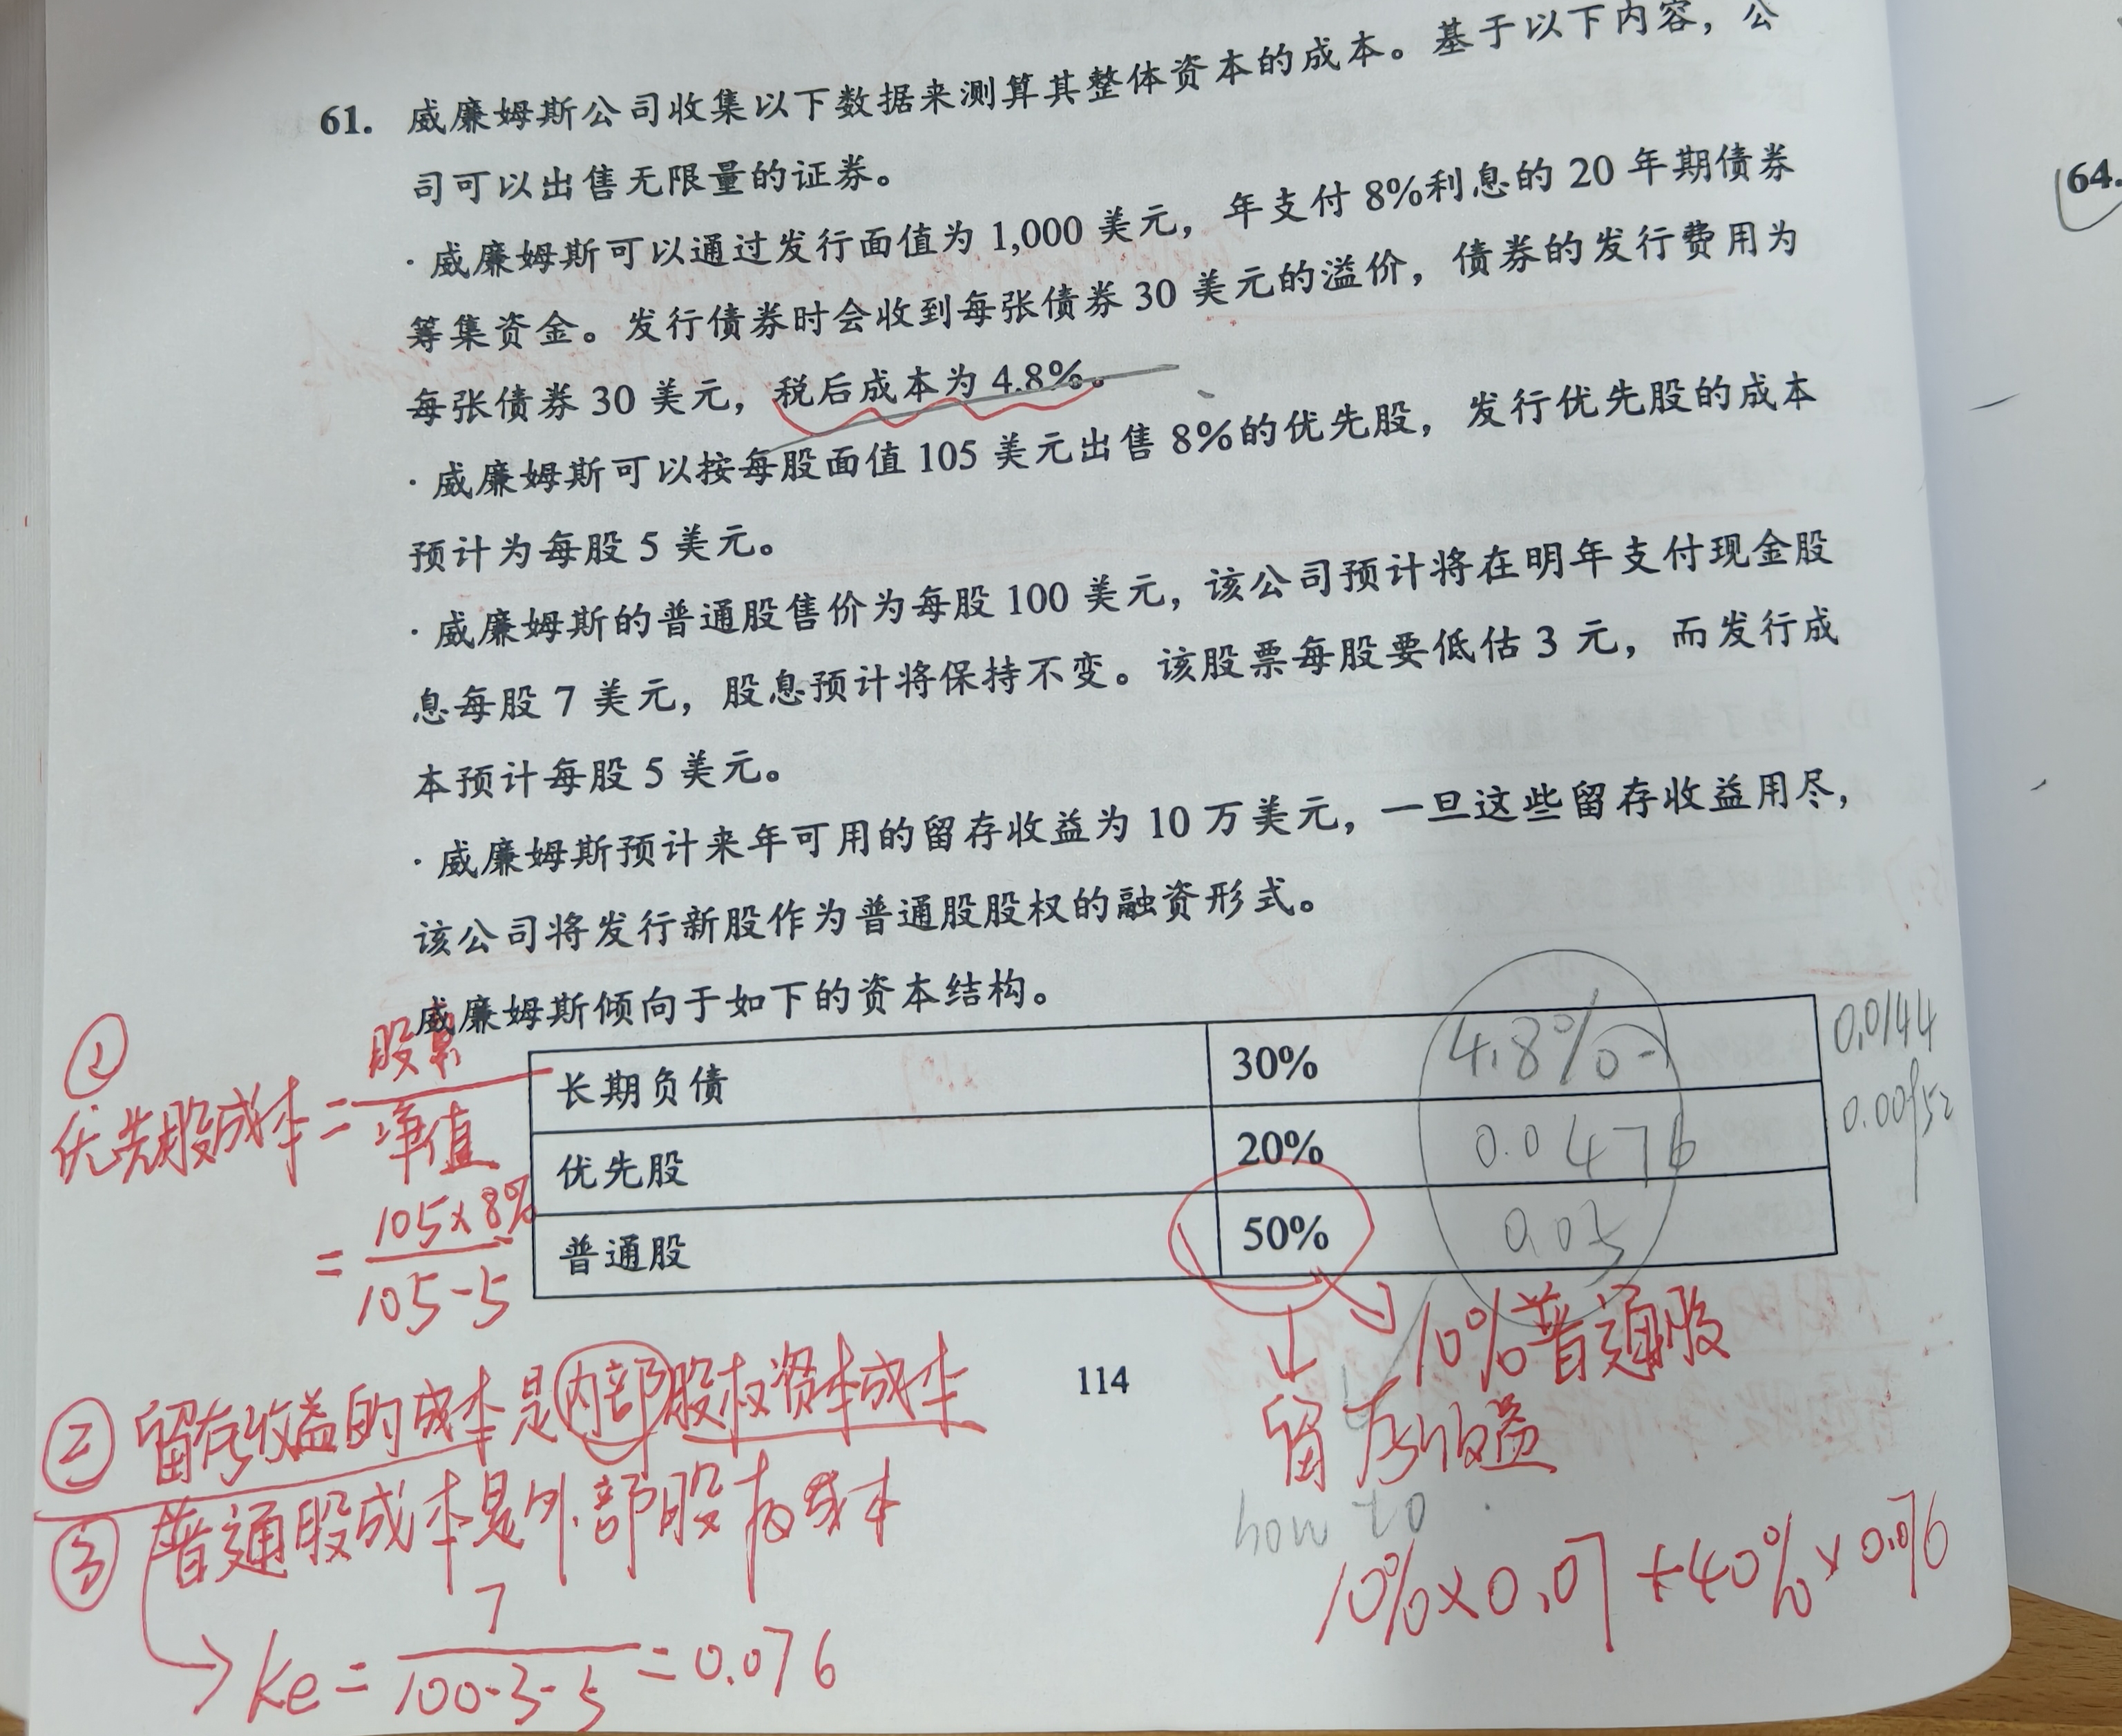 61. 威廉姆斯公司收集以下数据来测算其整体资本的成本。基于以下内容，公
司可以出售无限量的证券。
· 威廉姆斯可以通过发行面值为 1,000 美元，年支付 8%利息的 20 年期债券
筹集资金。发行债券时会收到每张债券 30 美元的溢价，债券的发行费用为
每张债券 30 美元，税后成本为 4.8%。
· 威廉姆斯可以按每股面值 105 美元出售 8%的优先股，发行优先股的成本
预计为每股 5 美元。
· 威廉姆斯的普通股售价为每股 100 美元，该公司预计将在明年支付现金股
息每股 7 美元，股息预计将保持不变。该股票每股要低估 3 元，而发行成
本预计每股 5 美元。
· 威廉姆斯预计来年可用的留存收益为 10 万美元，一旦这些留存收益用尽，
该公司将发行新股作为普通股股权的融资形式。
威廉姆斯倾向于如下的资本结构。
长期负债 30% 4.8% 0.0144
优先股 20% 0.0476 0.00952
普通股 50%
①
优先股成本=股息/净值
=105×8%/105-5
10%普通股
留存收益
how to
10%×0.07+40%×0.076
114
② 留存收益的成本是内部股权资本成本
③ 普通股成本是外部股权成本
→ Ke=7/100-3-5=0.076
64.